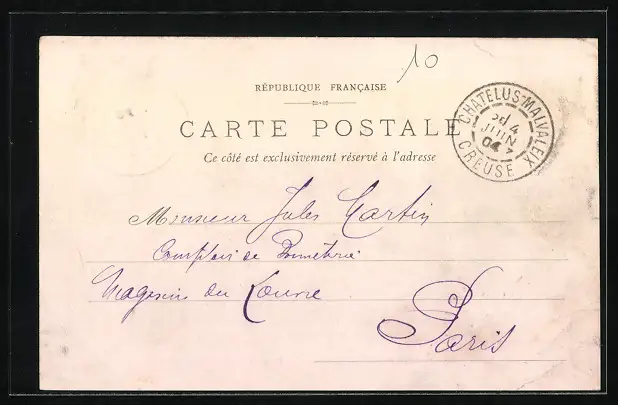 10
RÉPUBLIQUE FRANÇAISE
CARTE POSTALE
Ce côté est exclusivement réservé à l'adresse
CHATELUS-MALVALEIX
4
JUIN
04
CREUSE
Monsieur Jules Martin
Comptoir de Bonneterie
Magasins du Louvre
Paris